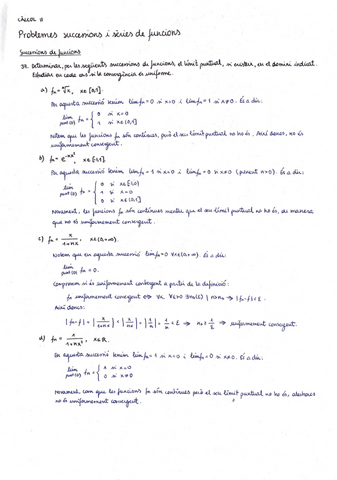 CÀLCUL II
Problemes successions i sèries de funcions
Successions de funcions
37. Determineu, per les següents successions de funcions, el límit puntual, si existeix, en el domini indicat.
Estudieu en cada cas si la convergència és uniforme.
a) fₙ = ⁿ√x, x∈[0,1].
En aquesta successió tenim lim fₙ = 0 si x=0 i lim fₙ = 1 si x≠0. És a dir:
lim punt(n) fₙ = { 0 si x=0
1 si x∈(0,1]
Notem que les funcions fₙ són contínues, però el seu límit puntual no ho és. Així doncs, no és
uniformement convergent.
b) fₙ = e^(-nx²), x∈[-1,1].
En aquesta successió tenim lim fₙ = 1 si x=0 i lim fₙ = 0 si x≠0 (x²>0). És a dir:
lim punt(n) fₙ = { 0 si x∈[-1,0)
1 si x=0
0 si x∈(0,1]
Novament, les funcions fₙ són contínues mentre que el seu límit puntual no ho és, de manera
que no és uniformement convergent.
c) fₙ = x/(1+nx), x∈(0,+∞).
Notem que en aquesta successió lim fₙ = 0 ∀x∈(0,+∞). És a dir:
lim punt(n) fₙ = 0.
Comprovem si és uniformement convergent a partir de la definició:
fₙ uniformement convergent ⟺ ∀x, ∀ε>0 ∃n₀(ε) | n≥n₀ → |fₙ-f|<ε.
Així doncs:
|fₙ-f| = |x/(1+nx)| < |x/nx| = |1/n| = 1/n < ε → n₀ ≥ 1/ε → uniformement convergent.
d) fₙ = 1/(1+nx²), x∈ℝ.
En aquesta successió tenim lim fₙ = 1 si x=0 i lim fₙ = 0 si x≠0. És a dir:
lim punt(n) fₙ = { 1 si x=0
0 si x≠0
Novament, com que les funcions fₙ són contínues però el seu límit puntual no ho és, aleshores
no és uniformement convergent.